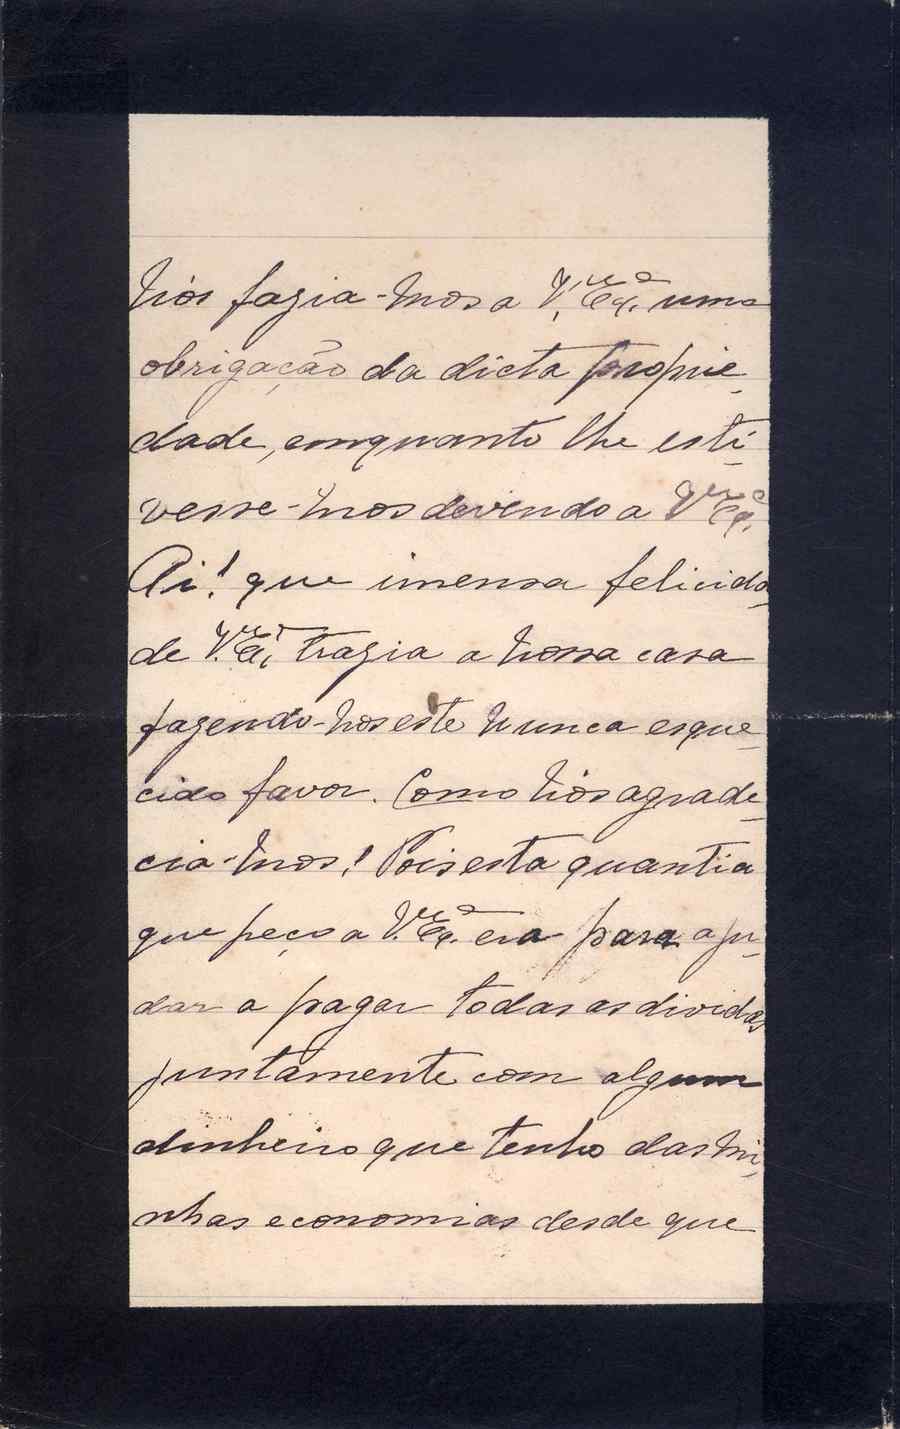 Nós fazia-mos a V.ª Ex.ª uma
obrigação da dicta proprie-
dade, emquanto lhe esti-
vesse-mos devendo a V.ª Ex.ª
Ai! que imensa felicida-
de V.ª Ex.ª trazia a nossa casa
fazendo-nos este nunca esque-
cido favor. Como nós agrade-
cia-mos! Pois esta quantia
que peço a V.ª Ex.ª era para aju-
dar a pagar todas as dividas
juntamente com algum
dinheiro que tenho das mi-
nhas economias desde que